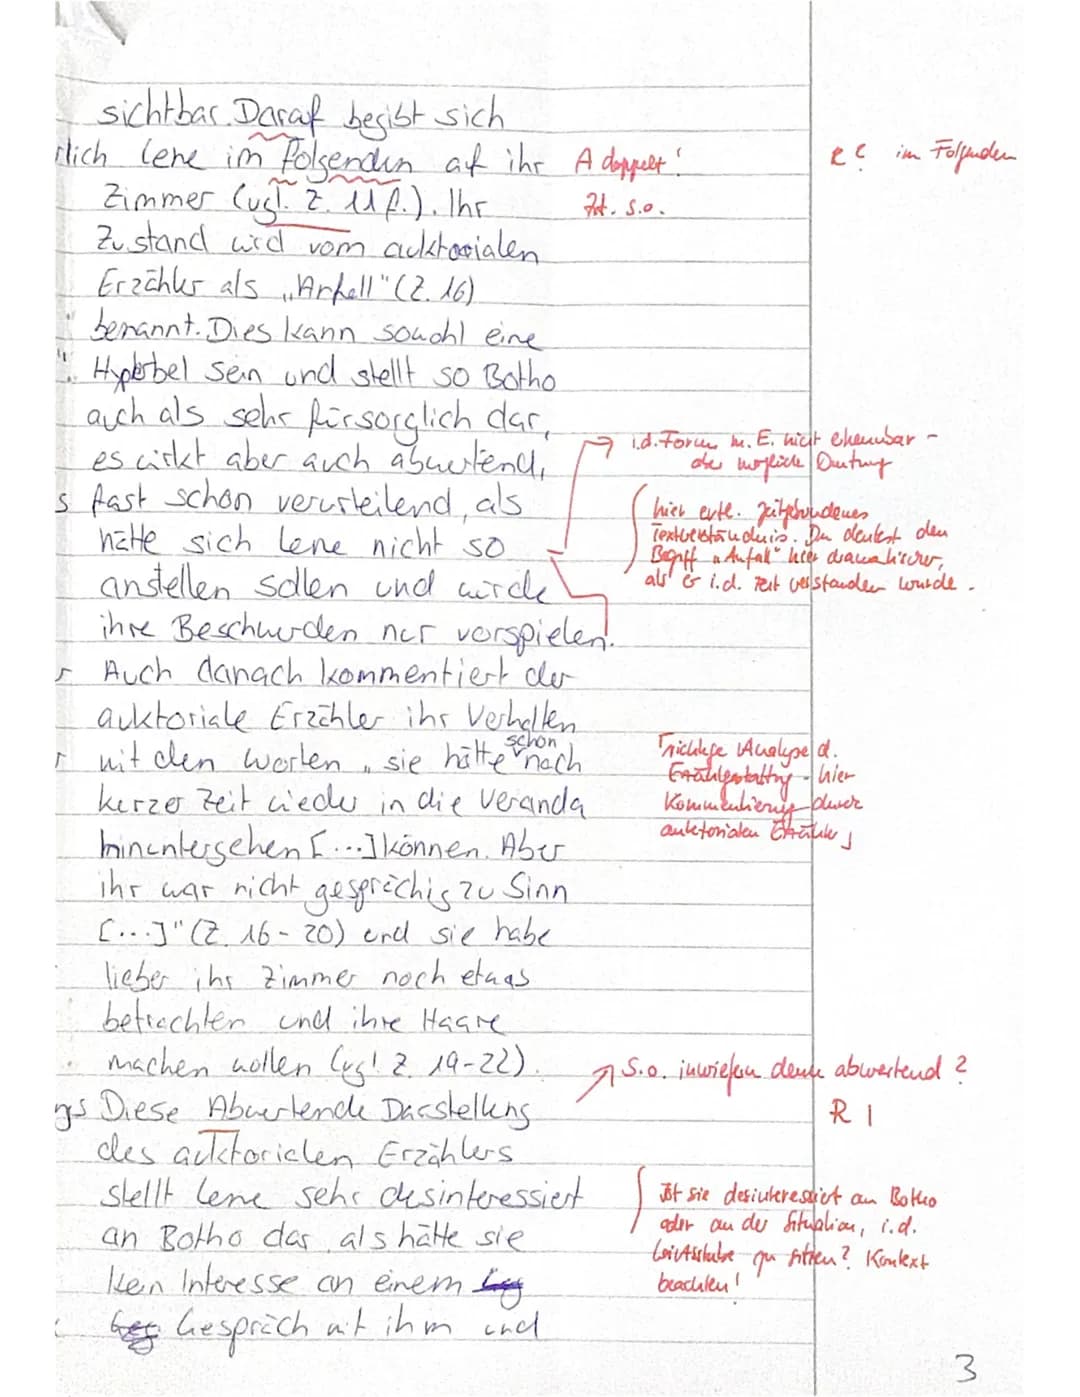 sichtbar. Darauf begibt sich
lich Lene im folgenden auf ihr
A doppelt!
R? im Folgenden
Zimmer (vgl. Z. 11 f.). Ihr
s.o.
Zustand wird vom auktorialen
Erzähler als „Anfall" (Z. 16)
benannt. Dies kann sowohl eine
Hyperbel sein und stellt so Botho
auch als sehr fürsorglich dar,
es wirkt aber auch abwertend,
s fast schon verurteilend, als
hätte sich Lene nicht so
anstellen sollen und würde
ihre Beschwerden nur vorspielen.
i.d. Form m. E. nicht erkennbar -
mögliche Deutung
hier evtl. zeitgebundenes
Textverständnis. Du deutest den
Begriff "Anfall" hier dramatischer,
als er i.d. Zeit verstanden wurde.
r Auch danach kommentiert der
auktoriale Erzähler ihr Verhalten
schon
r mit den Worten „sie hätte nach
kurzer Zeit wieder in die Veranda
hinuntergehen [...] können. Aber
ihr war nicht gesprächig zu Sinn
[...]" (Z. 16-20) und sie habe
lieber ihr Zimmer noch etwas
betrachten und ihre Haare
machen wollen (vgl. Z. 19-22).
richtige Analyse d.
Erzählgestaltung - hier
Kommentierung durch
auktorialen Erzähler
s.o. inwiefern denn abwertend?
gs Diese Abwertende Darstellung
R I
des auktorialen Erzählers
stellt Lene sehr desinteressiert
an Botho dar, als hätte sie
kein Interesse an einem
Gespräch mit ihm und
Ist sie desinteressiert an Botho
oder an der Situation, i.d.
zu sitzen? Kontext
beachten!
3